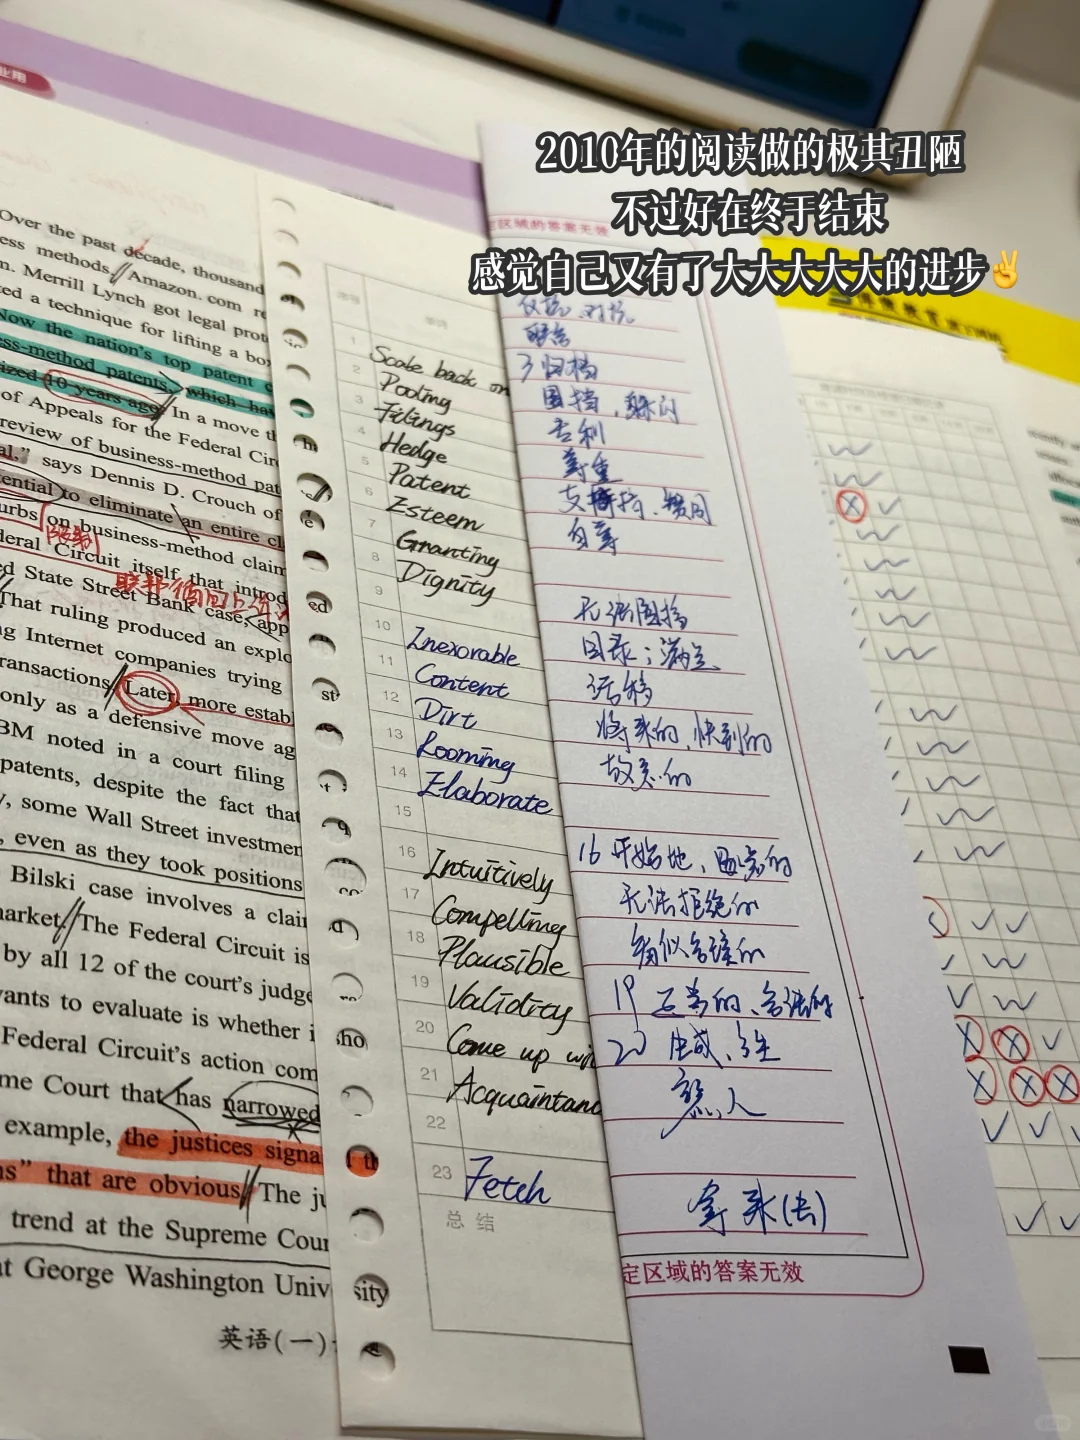 2010年的阅读做的极其丑陋
不过好在终于结束
感觉自己又有了大大大大大的进步✌
业用
Over the past decade, thousand
ess methods. Amazon. com re
n. Merrill Lynch got legal prot
ted a technique for lifting a bo
Now the nation's top patent c
ess-method patents, which hav
ized 10 years ago. In a move th
of Appeals for the Federal Cir
review of business-method pat
al," says Dennis D. Crouch of
tential to eliminate an entire cl
urbs on business-method claim
限制
deral Circuit itself that introd
ed State Street Bank case, app
That ruling produced an explo
ng Internet companies trying
ransactions. Later, more establ
only as a defensive move ag
BM noted in a court filing
patents, despite the fact that
y, some Wall Street investmen
, even as they took positions
Bilski case involves a clai
market. The Federal Circuit is
by all 12 of the court's judge
vants to evaluate is whether i
Federal Circuit's action com
me Court that has narrowed
example, the justices signa
ns" that are obvious. The ju
trend at the Supreme Cour
at George Washington Univ
sity
英语(一)
1
2 Scale back on
3 Pooling
4 Filings
5 Hedge
6 Patent
7 Esteem
8 Granting
9 Dignity
10
11 Inexorable
12 Content
13 Dirt
14 Looming
15 Elaborate
16
17 Intuitively
18 Compelling
19 Plausible
20 Validity
21 Come up wi
22 Acquaintanc
23 Fetch
总结
区域的答案无效
联合
3 归档
围挡、躲闪
专利
尊重
自尊
目录；满足
将来的,快到的
无法拒绝的
看似合理的
19 正当的、合法的
20 生成、产生
熟人
拿来(去)
定区域的答案无效